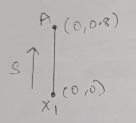 A (0,0.8)
S
X1 (0,0)